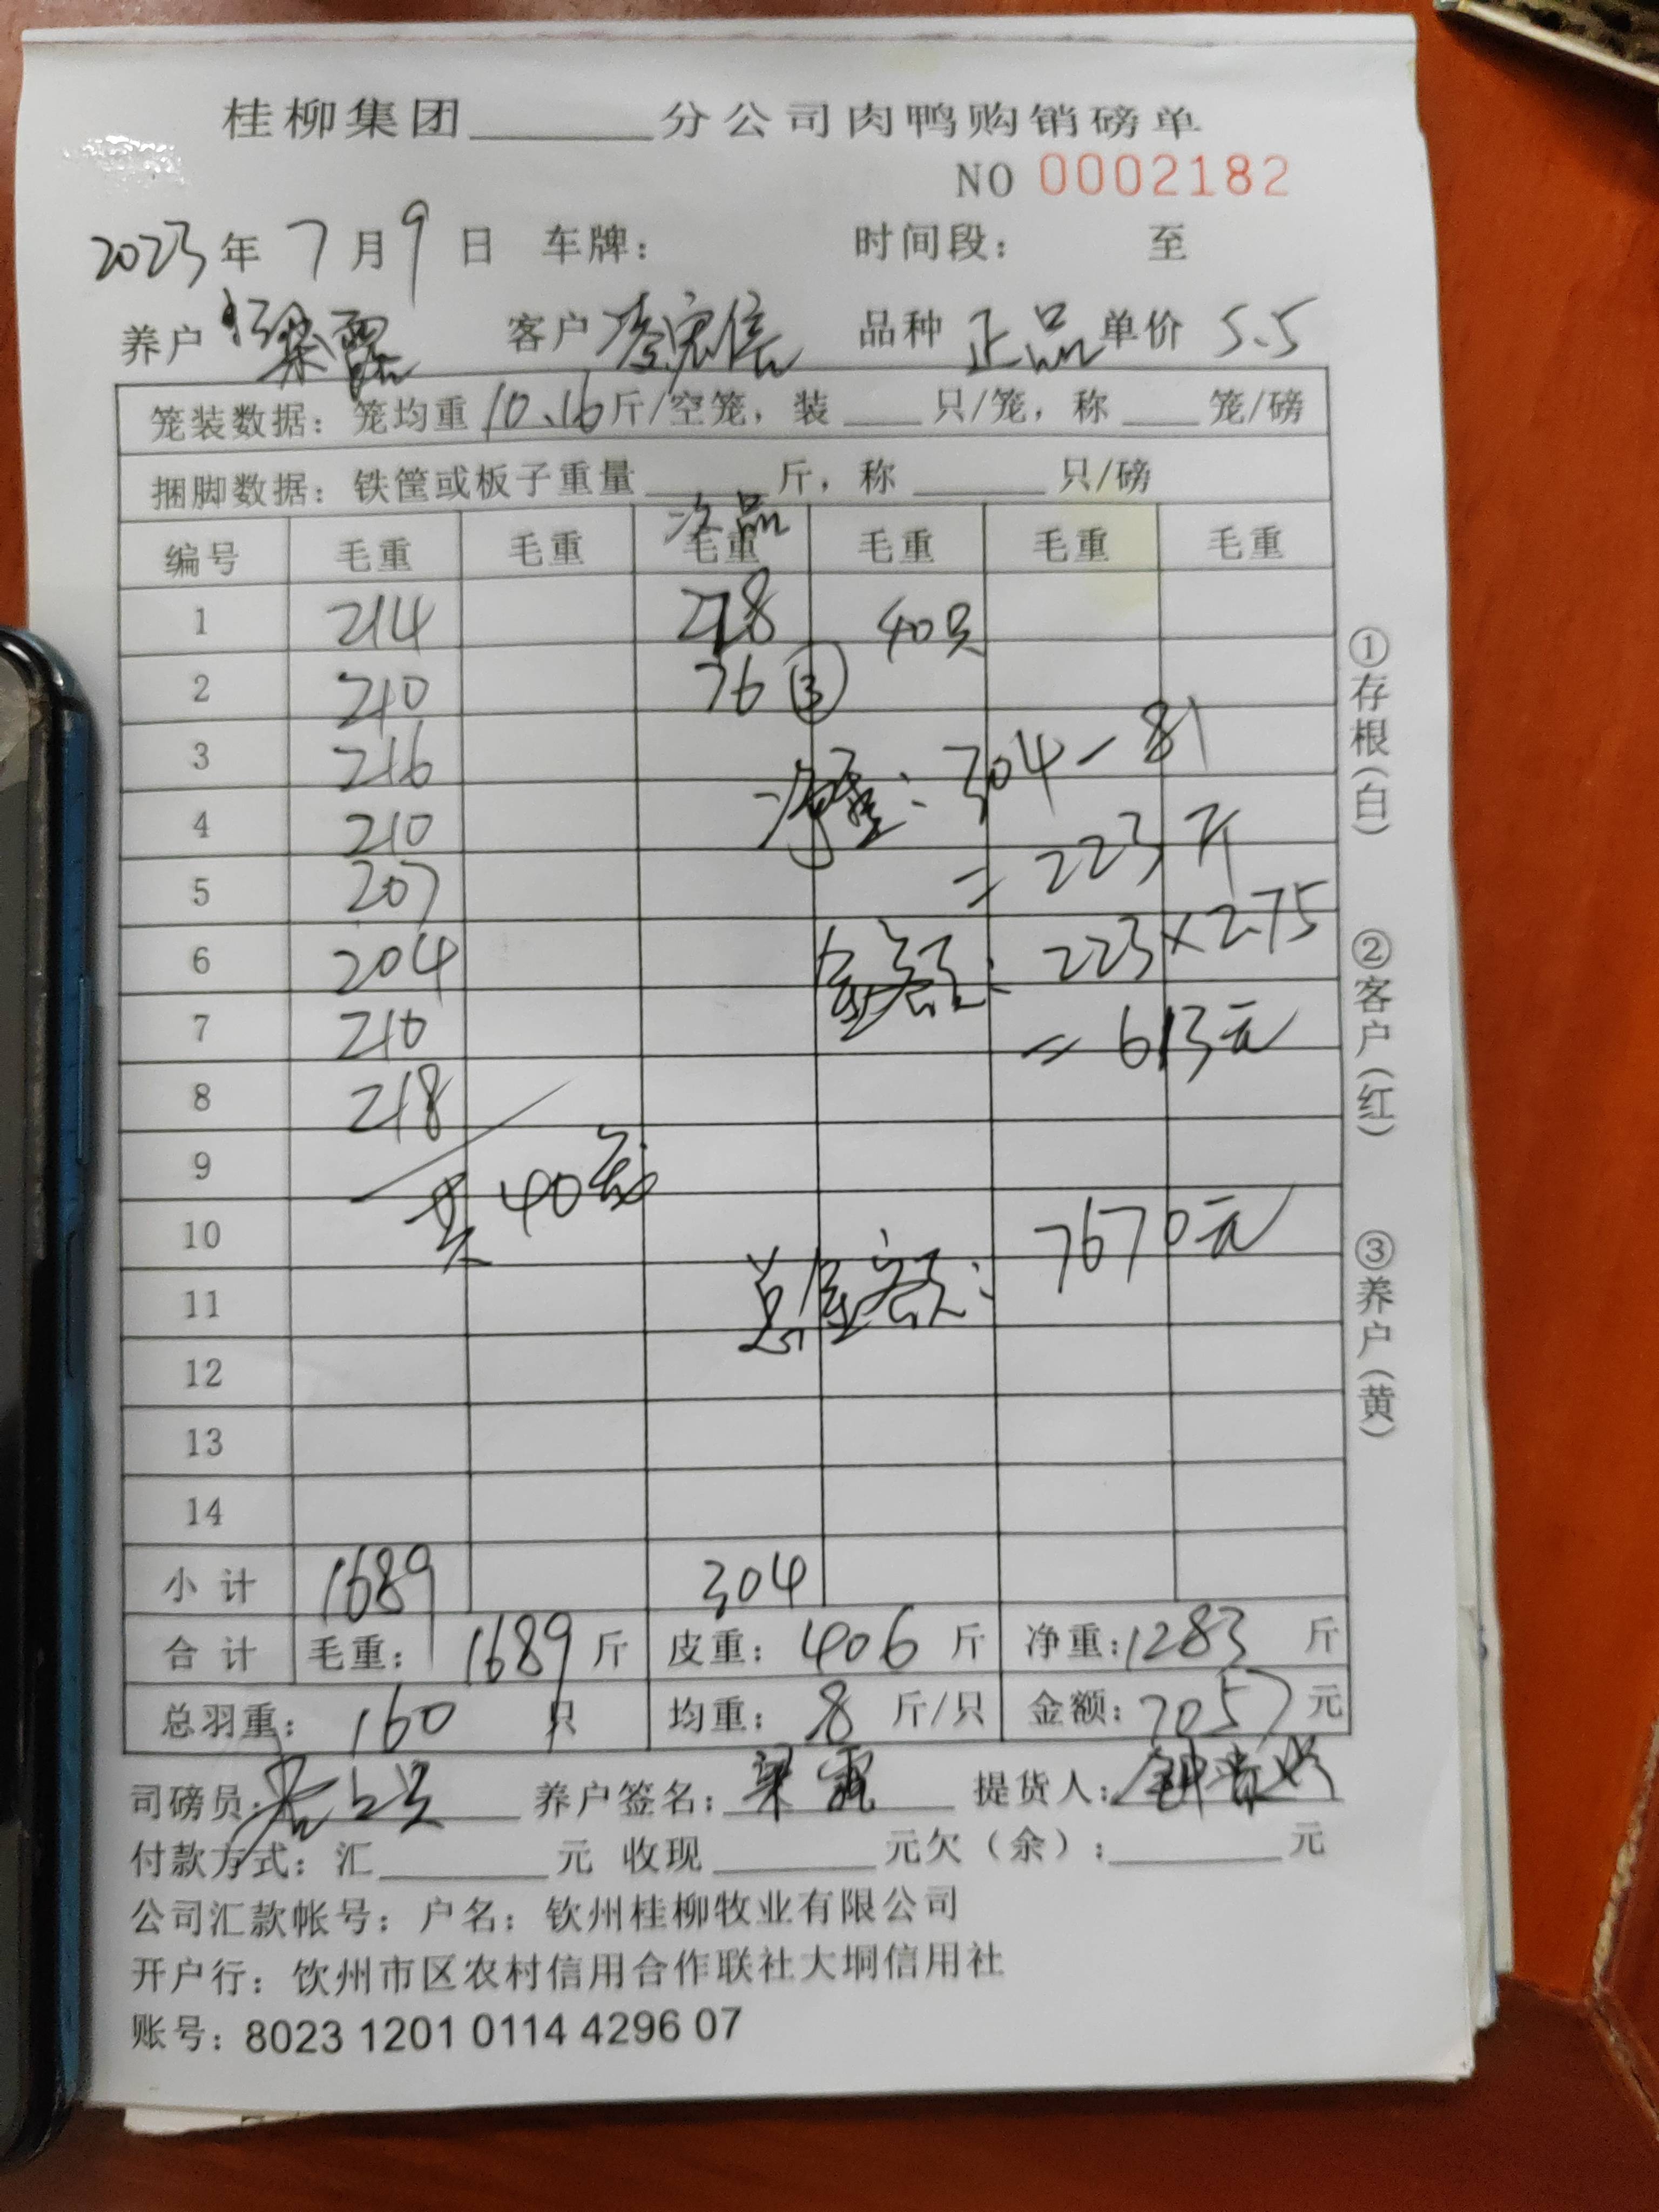 桂柳集团______分公司肉鸭购销磅单
NO 0002182
2023年 7月9日 车牌： 时间段： 至
养户 梁霞 客户 李宏信 品种 正品 单价 5.5
笼装数据：笼均重10.16斤/空笼，装___只/笼，称___笼/磅
捆脚数据：铁筐或板子重量_____斤，称_____只/磅
次品
编号 毛重 毛重 毛重 毛重 毛重 毛重
1 214 228 40只
2 210 76
3 216 净重：304-81
4 210 =223斤
5 207
6 204 金额：223×2.75
7 210 =613元
8 218
9 共40笼
10 7670元
11 总金额：
12
13
14
小计 1689 304
合计 毛重：1689斤 皮重：406斤 净重：1283斤
总羽重：160只 均重：8斤/只 金额：7057元
司磅员： 养户签名：梁霞 提货人：
付款方式：汇______元 收现______元欠（余）：______元
公司汇款帐号：户名：钦州桂柳牧业有限公司
开户行：饮州市区农村信用合作联社大垌信用社
账号：8023 1201 0114 4296 07
①存根(白) ②客户(红) ③养户(黄)